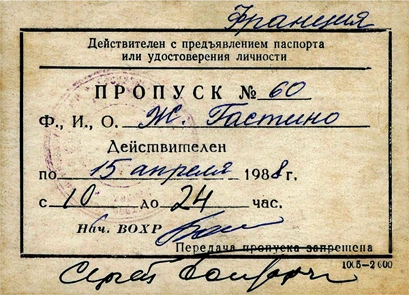 Франция
Действителен с предъявлением паспорта
или удостоверения личности
ПРОПУСК № 60
Ф., И., О. Ж. Гастино
Действителен
по 15 апреля 1988 г.
с 10 до 24 час.
Нач. ВОХР
Передача пропуска запрещена
Сергей